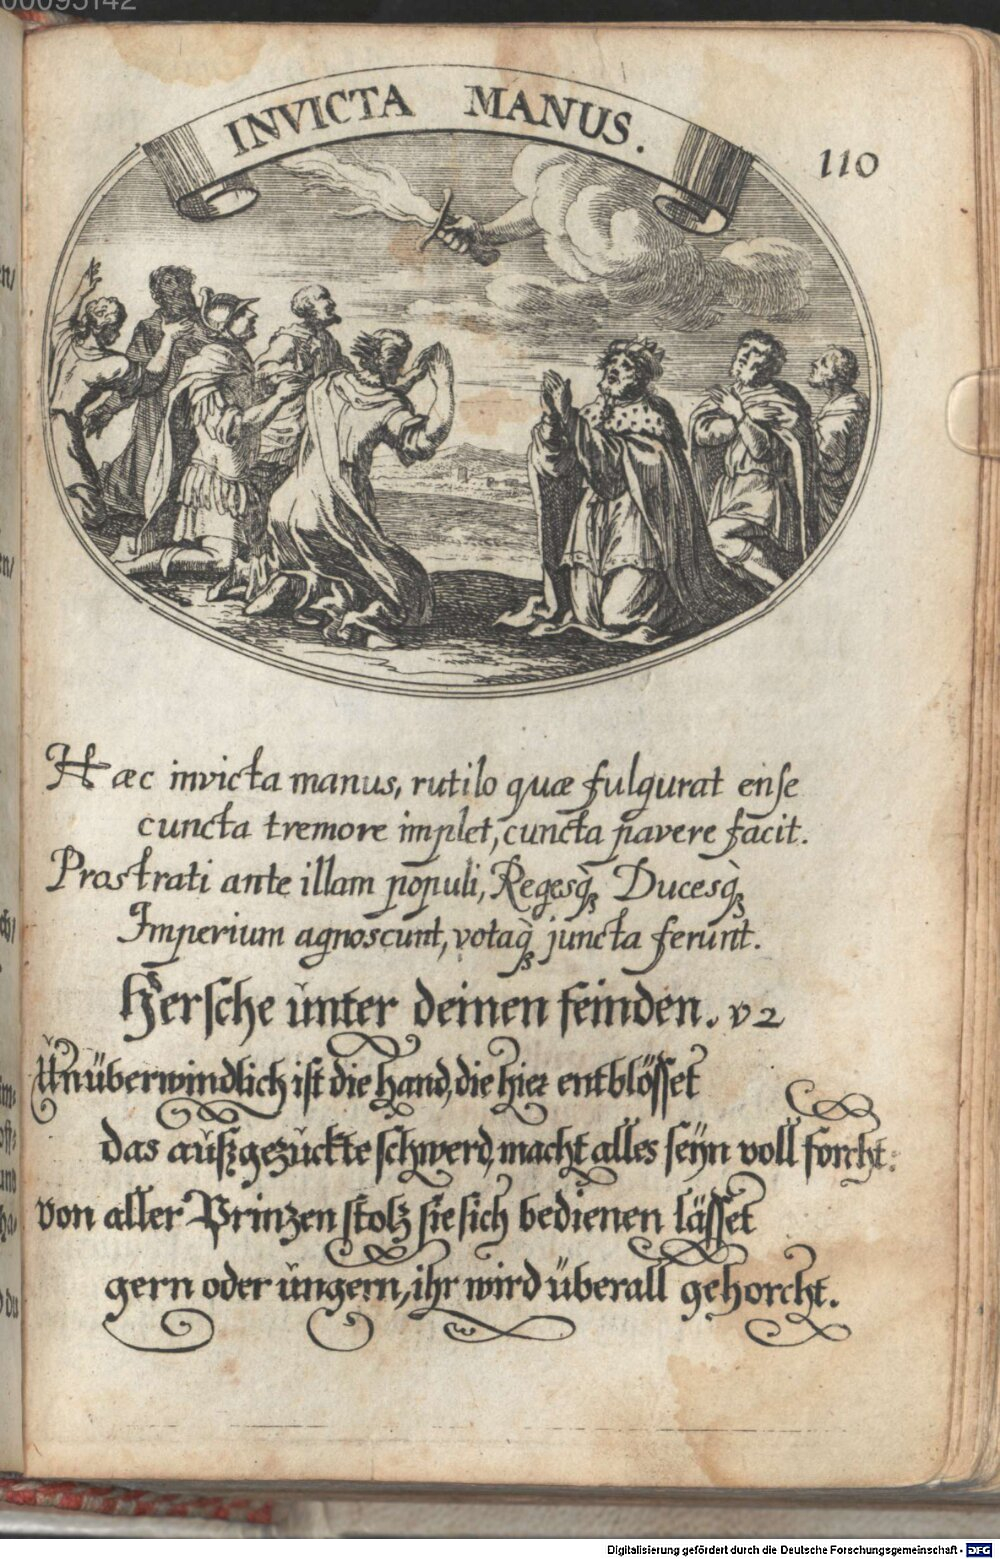 00095142
INVICTA MANUS.
110
Hæc invicta manus, rutilo quæ fulgurat enſe
cuncta tremore implet, cuncta pavere facit.
Prostrati ante illam populi, Regesq́; Ducesq́;
Imperium agnoscunt, votaq́; juncta ferunt.
Herſche unter deinen feinden. v 2
Unüberwindlich iſt die hand, die hier entblöſſet
das außgezückte ſchwerd, macht alles ſeÿn voll forcht:
von aller Prinzen ſtolz ſie ſich bedienen läſſet
gern oder ungern, ihr wird überall gehorcht.
Digitalisierung gefördert durch die Deutsche Forschungsgemeinschaft - DFG